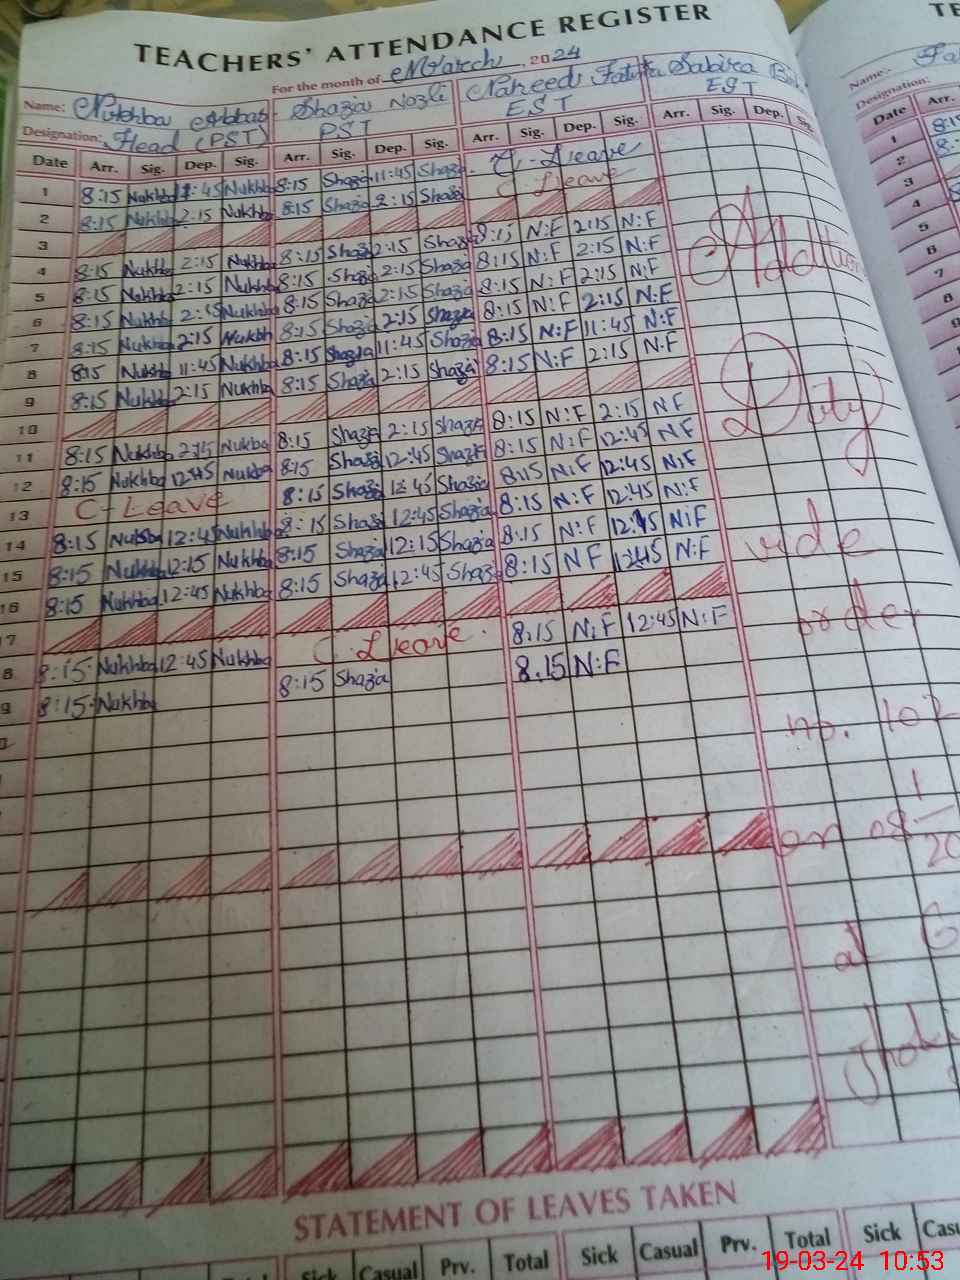 TEACHERS' ATTENDANCE REGISTER
For the month of March, 2024
Name: Nukhba Abbas Shazia Nazli Naheed Fatima Sabira
Designation: Head (PST) PST EST EST
Date Arr. Sig. Dep. Sig. Arr. Sig. Dep. Sig. Arr. Sig. Dep. Sig. Arr. Sig. Dep. Sig.
1 8:15 Nukhba 11:45 Nukhba 8:15 Shazia 11:45 Shazia C. Leave
2 8:15 Nukhba 2:15 Nukhba 8:15 Shazia 2:15 Shazia C. Leave
3
4 8:15 Nukhba 2:15 Nukhba 8:15 Shazia 2:15 Shazia 8:15 N:F 2:15 N:F
5 8:15 Nukhba 2:15 Nukhba 8:15 Shazia 2:15 Shazia 8:15 N:F 2:15 N:F
6 8:15 Nukhba 2:15 Nukhba 8:15 Shazia 2:15 Shazia 8:15 N:F 2:15 N:F
7 8:15 Nukhba 2:15 Nukhba 8:15 Shazia 2:15 Shazia 8:15 N:F 2:15 N:F
8 8:15 Nukhba 11:45 Nukhba 8:15 Shazia 11:45 Shazia 8:15 N:F 11:45 N:F
9 8:15 Nukhba 2:15 Nukhba 8:15 Shazia 2:15 Shazia 8:15 N:F 2:15 N:F
10
11 8:15 Nukhba 2:15 Nukhba 8:15 Shazia 2:15 Shazia 8:15 N:F 2:15 NF
12 8:15 Nukhba 12:45 Nukhba 8:15 Shazia 12:45 Shazia 8:15 N:F 12:45 NF
13 C-Leave 8:15 Shazia 12:45 Shazia 8:15 N:F 12:45 N:F
14 8:15 Nukhba 12:45 Nukhba 8:15 Shazia 12:45 Shazia 8:15 N:F 12:45 N:F
15 8:15 Nukhba 12:15 Nukhba 8:15 Shazia 12:15 Shazia 8:15 N:F 12:15 N:F
16 8:15 Nukhba 12:45 Nukhba 8:15 Shazia 12:45 Shazia 8:15 NF 12:45 N:F
7
8 8:15 Nukhba 12:45 Nukhba C. Leave 8:15 N:F 12:45 N:F
9 8:15 Nukhba 8:15 Shazia 8.15 N:F
Addition
Duty
vide
order
no. 102
on 08
at G
STATEMENT OF LEAVES TAKEN
Total Sick Casual Prv. Total Sick Casual Prv. Total Sick
Name:
Designation:
Date Arr.
1 8:15
2
3
4
5
6
7
8
9
19-03-24 10:53